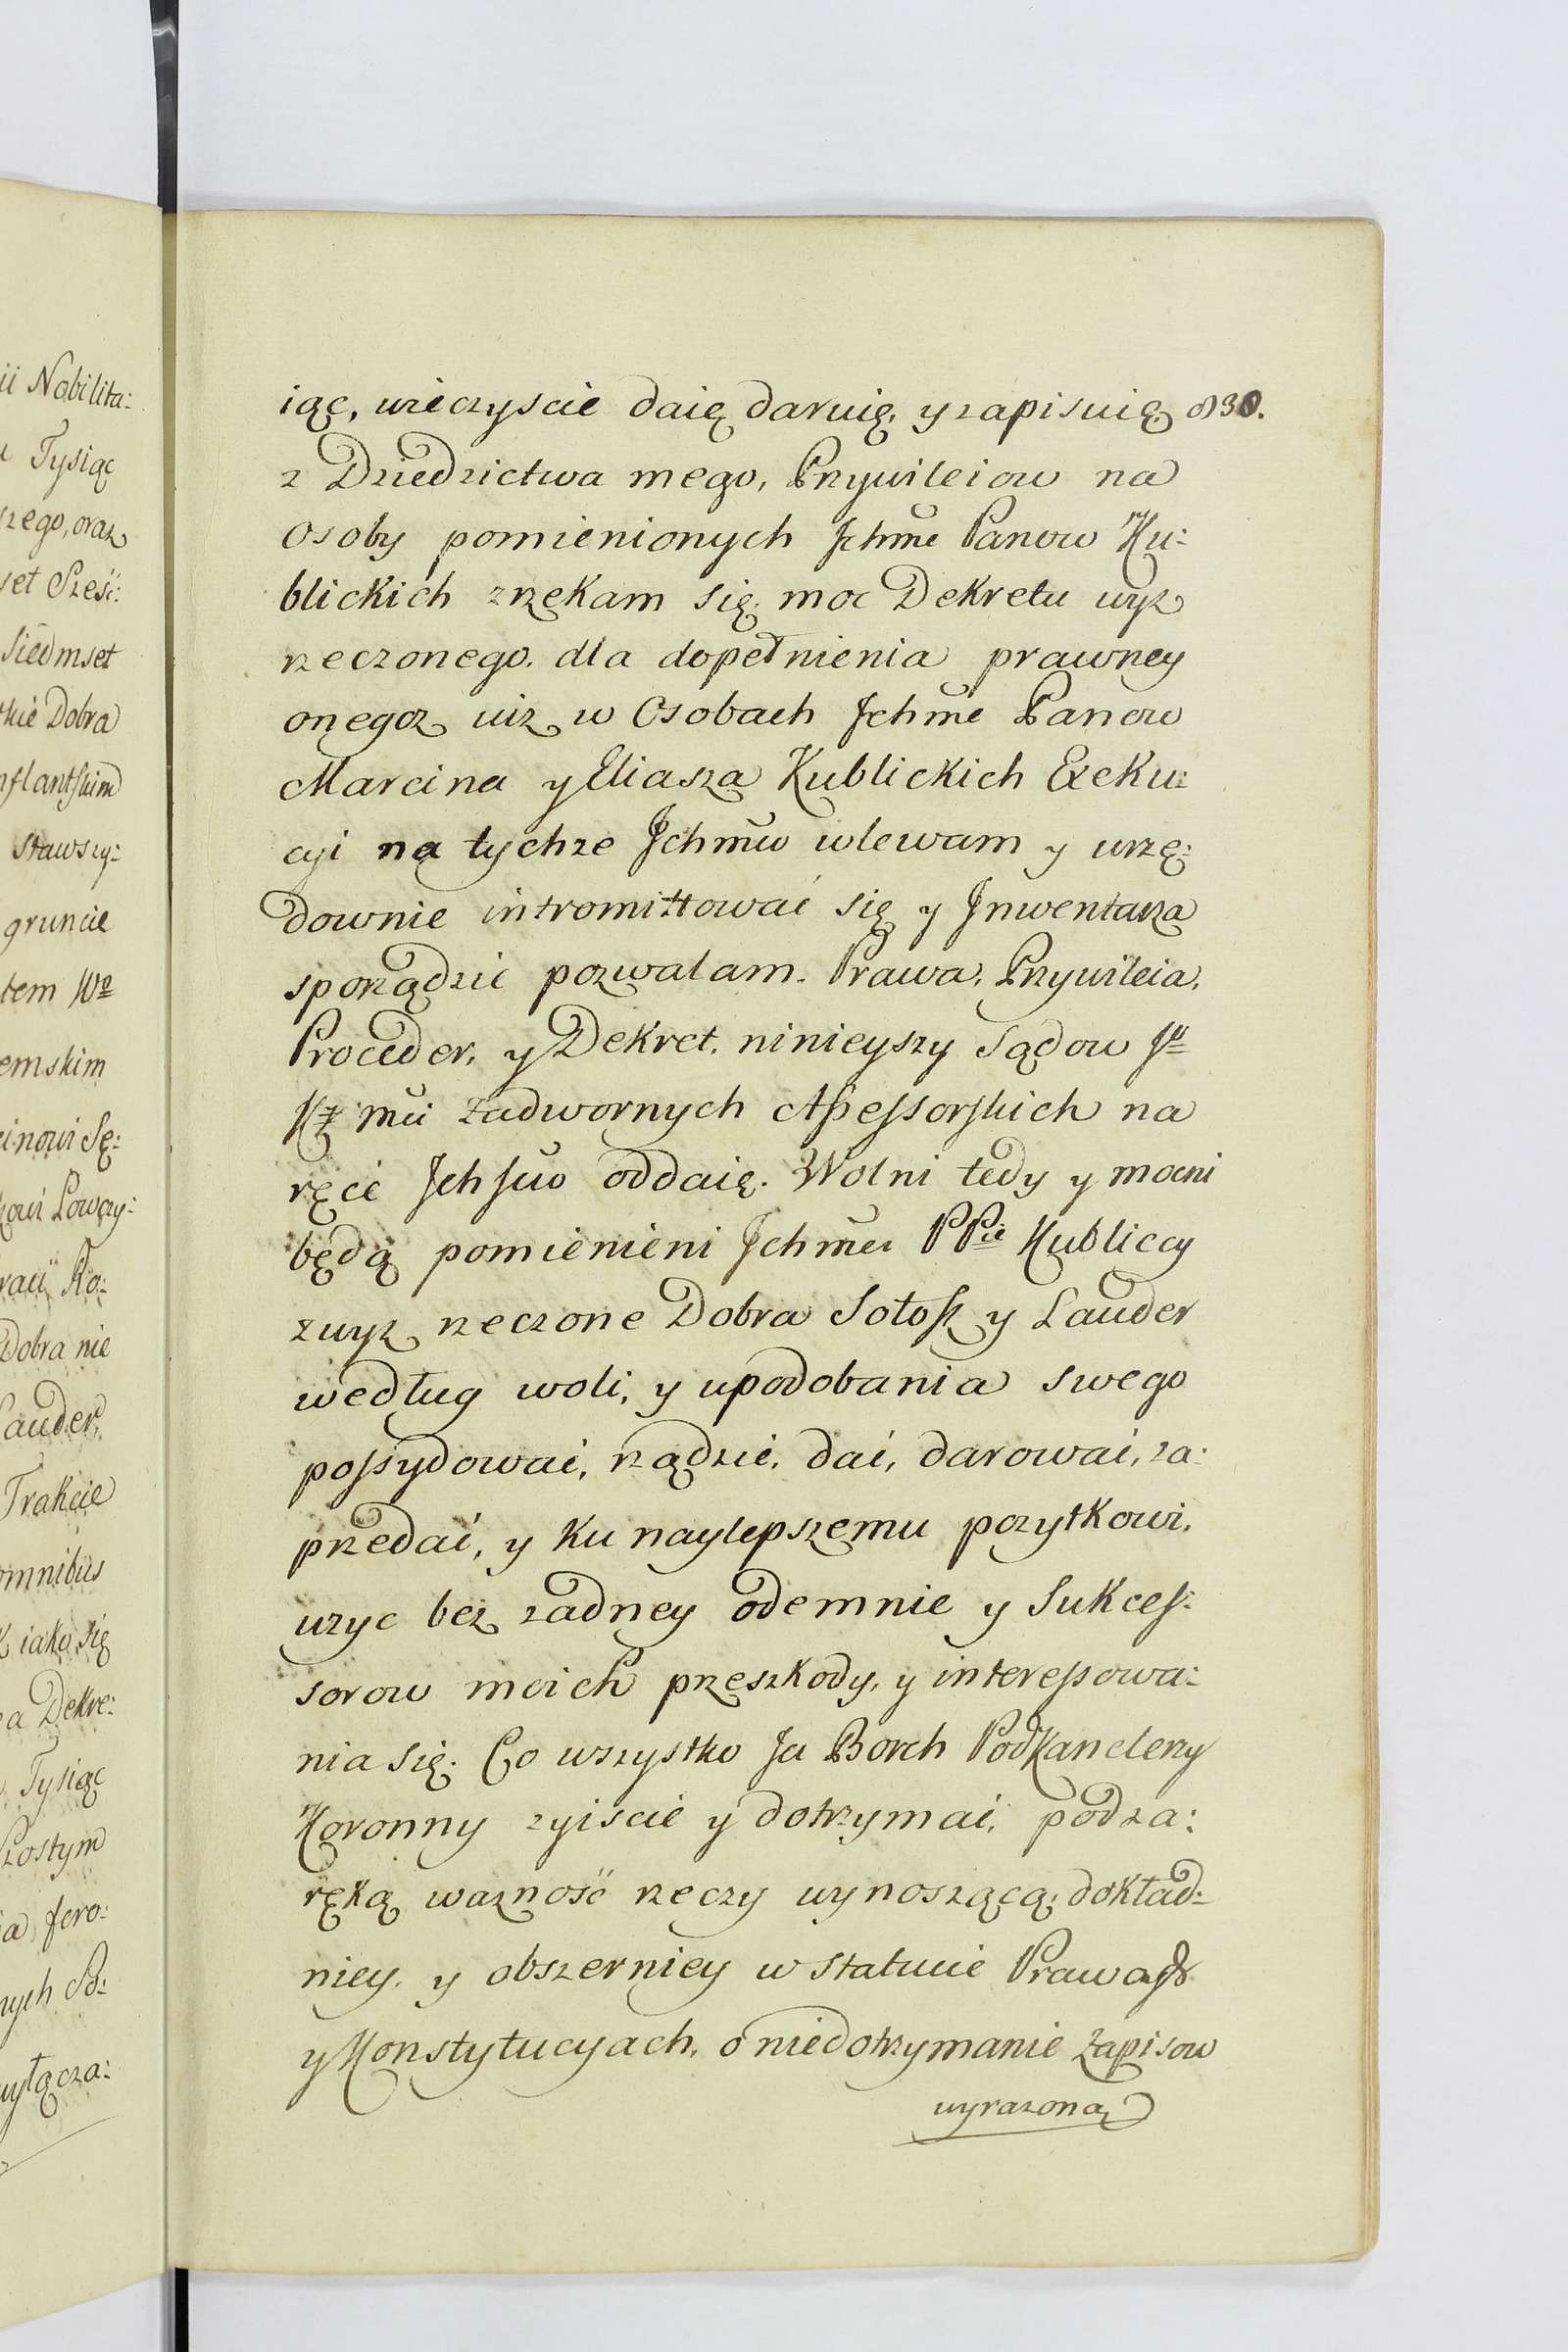 ii Nobilita:
Tysiąc
szego, oraz
set Sześć:
Siedmset
Dobra
nflantskim
stawszy:
gruncie
tem Wo
emskim
cinowi Sę:
Łowczy:
Ro:
Dobra nie
Lauder,
Trakcie
omnibus
iako się
a Dekre:
Tysiąc
szostym
fero:
nych Po:
wyłącza:
iąc, wieczyscie daię daruię, y zapisuię 830.
z Dziedzictwa mego, Przywileiow na
Osoby pomienionych Jchmć Panow Ku:
blickich zrzekam się, moc Dekretu wyz
rzeczonego, dla dopełnienia prawney
onegoz iuz w Osobach Jchmć Panow
Marcina y Eliasza Kublickich Exeku:
cyi na tychze Jchmćiow wlewam y urzę:
downie intromittować się y Jnwentarza
sporządzić pozwalam. Prawa, Przywileia,
Proceder, y Dekret, ninieyszy Sądow
Kr mći Zadwornych Assessorskich na
ręcé oddaię. Wolni tedy y mocni
będą pomienieni Jchmći PPie Kubliccy
zwyz rzeczone Dobra Sołosz y Lauder
według woli, y upodobania swego
possydować, rządzić, dać, darować, za:
przedać, y ku naylepszemu pozytkowi,
uzyc bez zadney odemnie y Sukces:
sorow moich przeszkody, y interessowa:
nia się. Co wszystko Ja Borch Podkanclerzy
Koronny zyiscić y dotrzymać, pod za:
ręką waznosć rzeczy wynoszącą, dokład:
niey, y obszerniey w statucie Prawa
y Konstytucyach, o niedotrzymanie Zapisow
wyrazoną